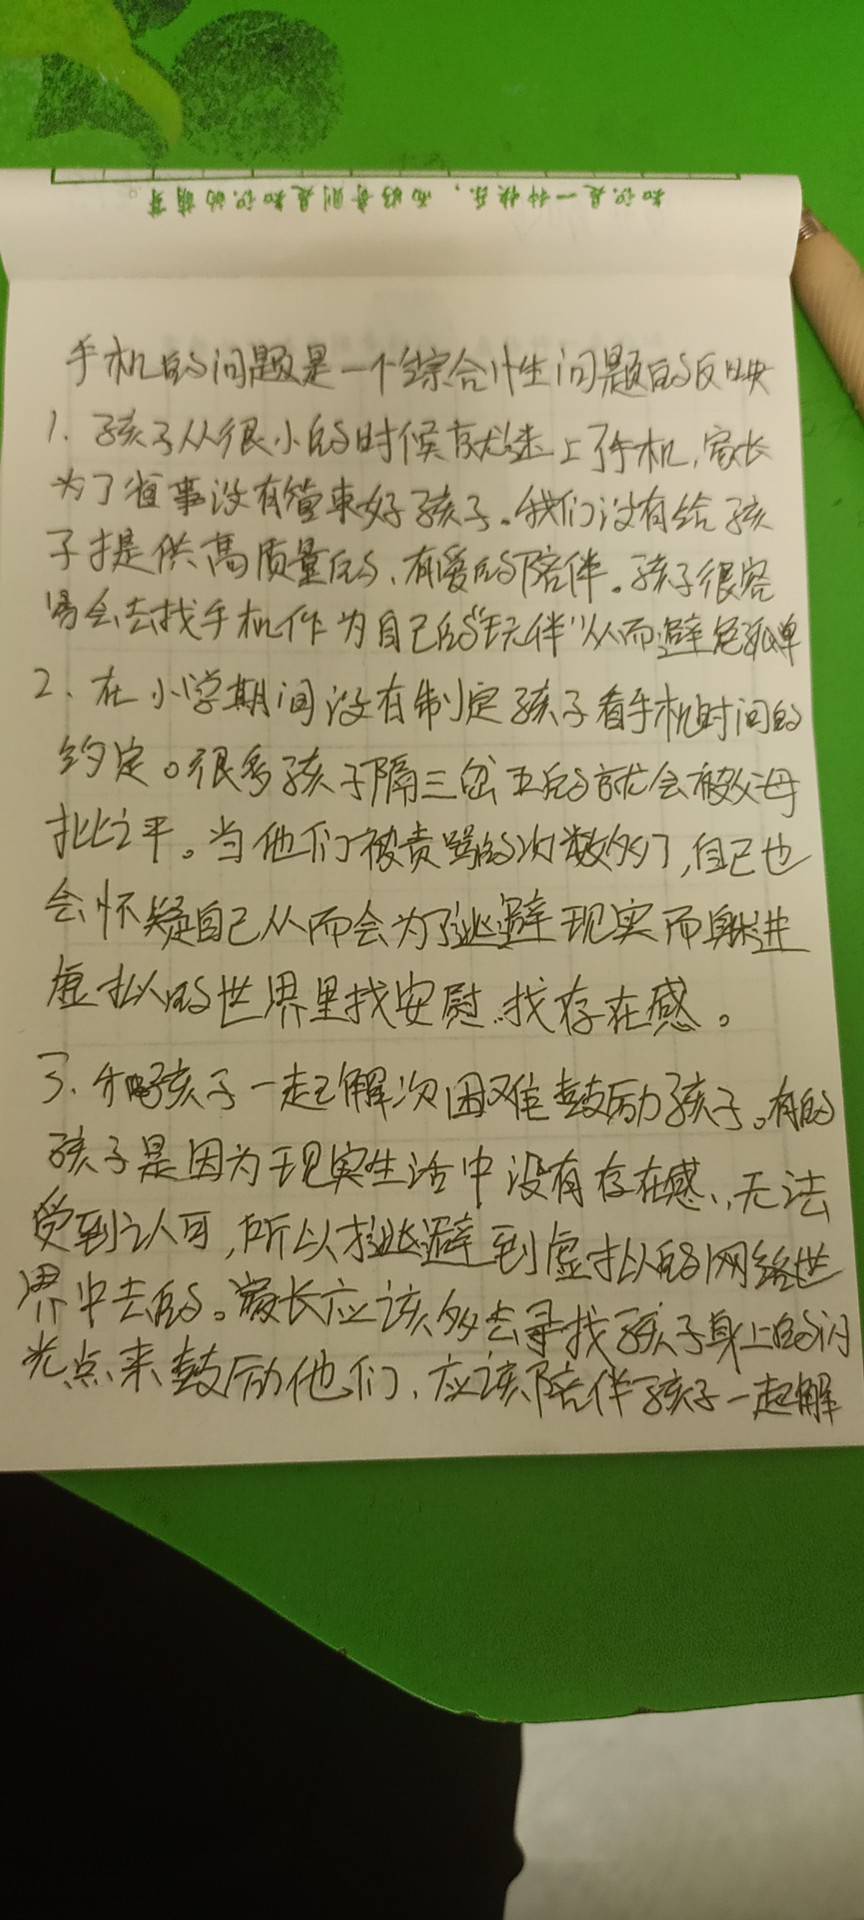 知识是一种快乐，而好奇则是知识的萌芽。
手机的问题是一个综合性问题的反映
1. 孩子从很小的时候就迷上了手机,家长
为了省事没有管束好孩子。我们没有给孩
子提供高质量的、有爱的陪伴。孩子很容
易会去找手机作为自己的“玩伴”从而避免孤单
2、在小学期间没有制定孩子看手机时间的
约定。很多孩子隔三岔五的就会被父母
批评。当他们被责骂的次数多了,自己也
会怀疑自己从而会为了逃避现实而躲进
虚拟的世界里找安慰、找存在感。
3、孩子一起解决困难鼓励孩子。有的
孩子是因为现实生活中没有存在感、无法
受到认可,所以才逃避到虚拟的网络世
界中去的。家长应该多去寻找孩子身上的闪
光点来鼓励他们、应该陪伴孩子一起解